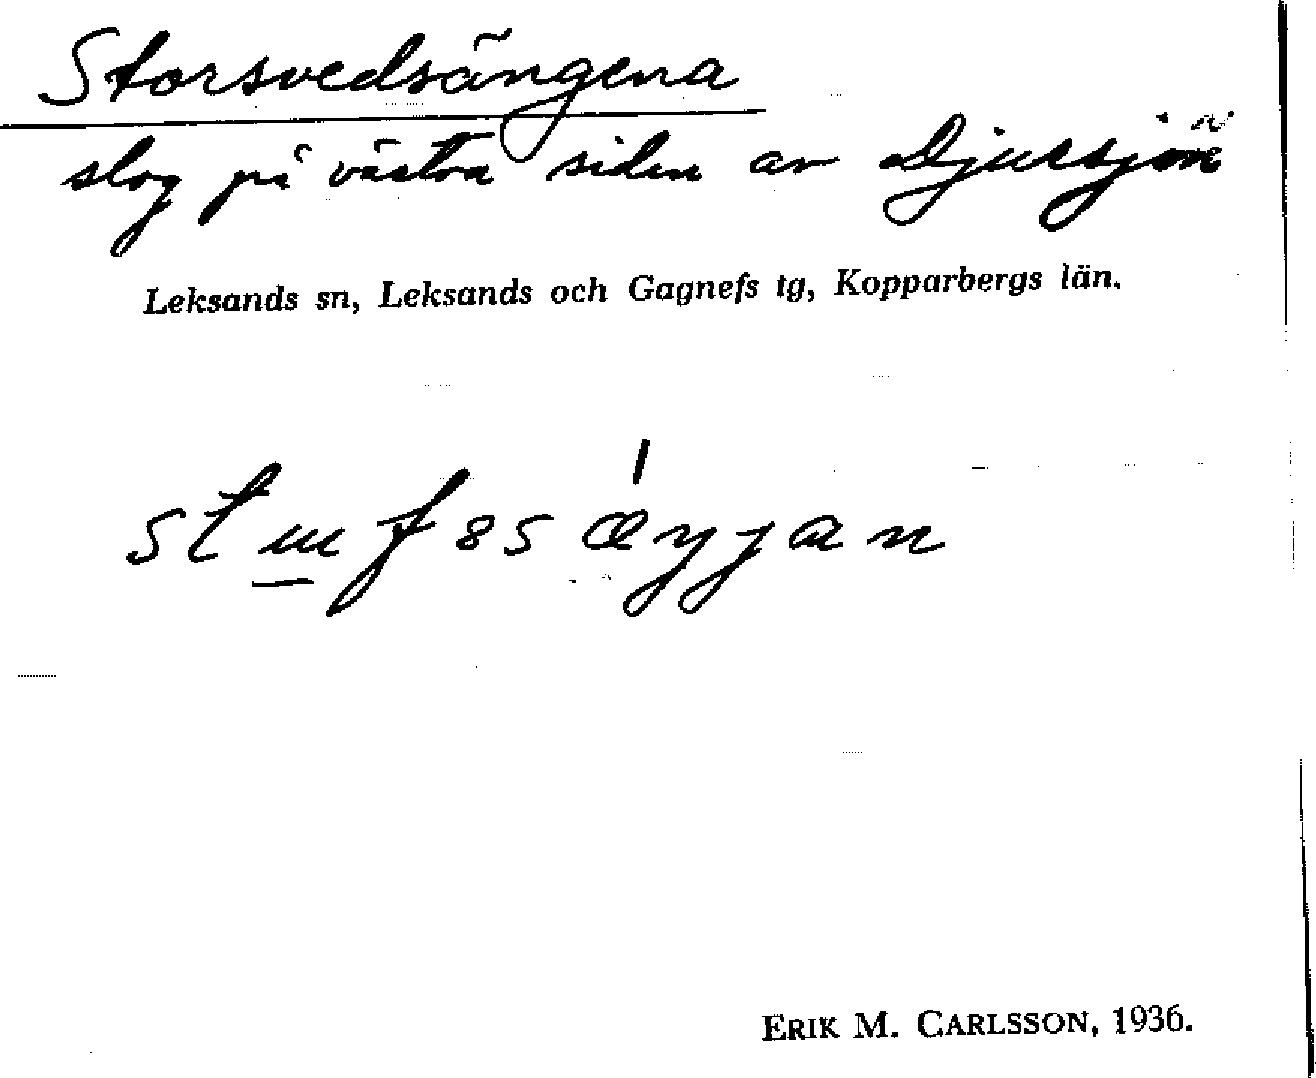 Storsvedsängena
slog på västra siden av Djursjön
Leksands sn, Leksands och Gagnefs tg, Kopparbergs län.
ERIK M. CARLSSON, 1936.